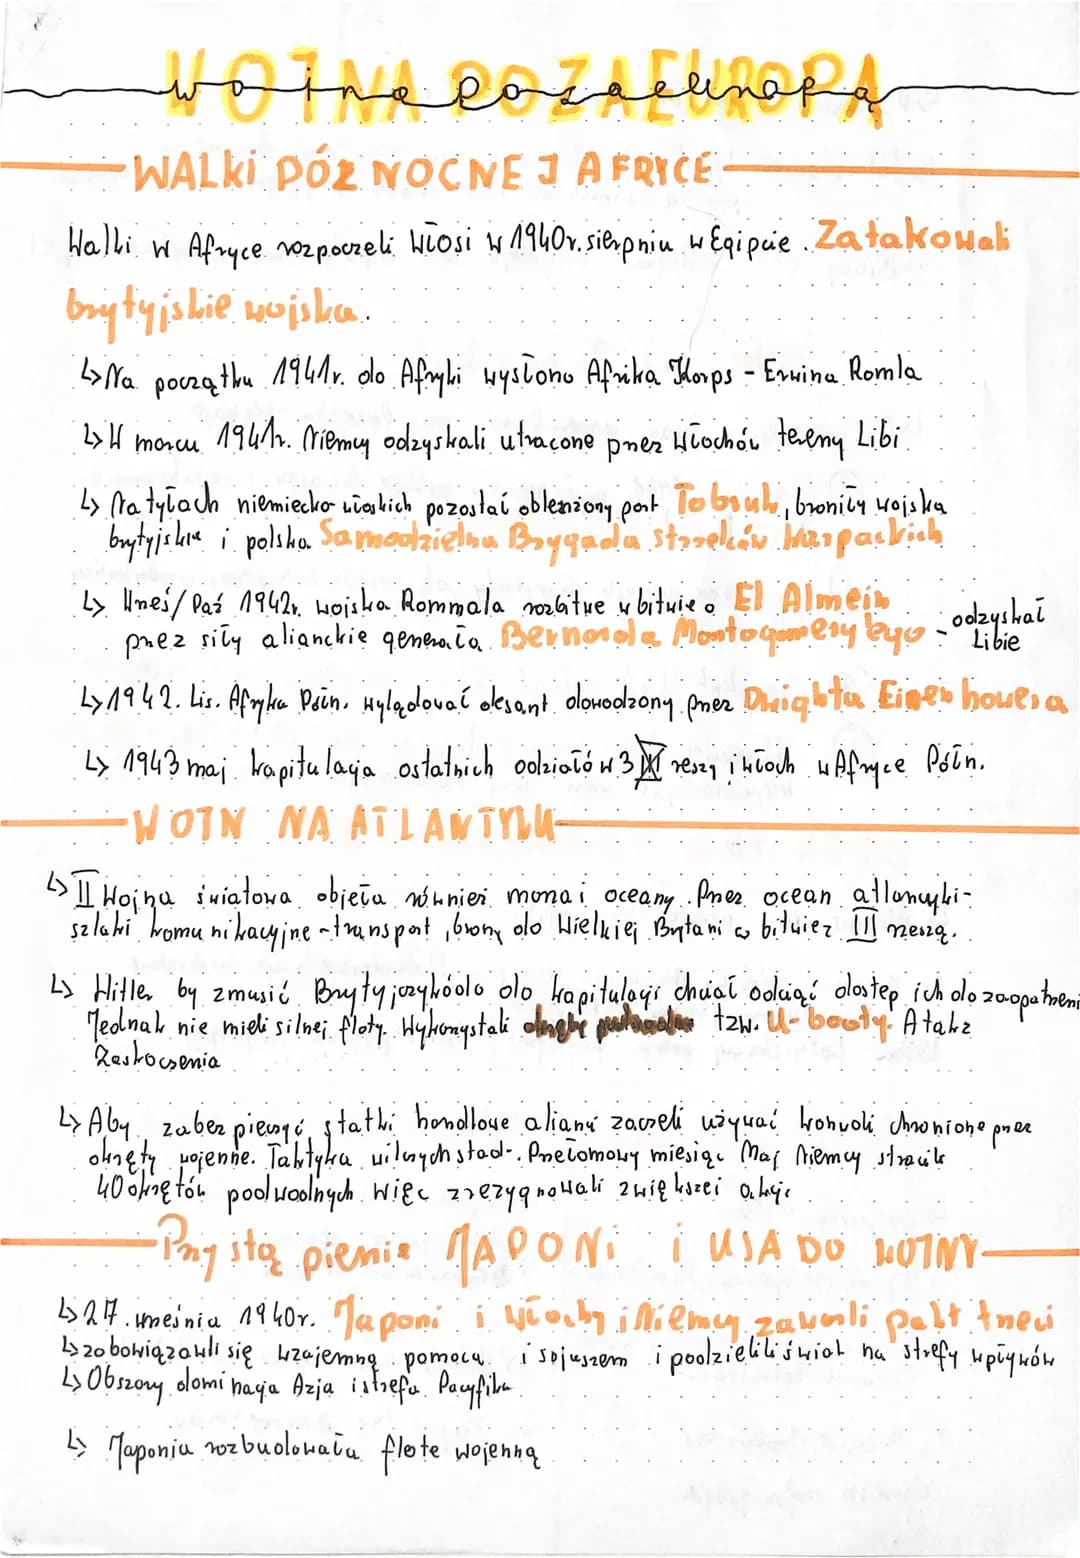 WOJNA POZA EUROPĄ
wojna poza europą
WALKI PÓŁNOCNEJ AFRYCE
Walki w Afryce rozpoczeli Włosi w 1940r. sierpniu w Egipcie. Zatakowali
brytyjskie wojska.
↳Na początku 1941r. do Afryki wysłono Afrika Korps - Erwina Romla
↳W marcu 1941r. Niemcy odzyskali utracone przez Włochów tereny Libi
↳ Na tyłach niemiecko włoskich pozostał oblenżony port Tobruk, broniły wojska
brytyjskie i polska Samodzielna Brygada strzelców karpackich
↳ Wrześ/Paź 1942r. wojska Rommala rozbitue w bitwie o El Almein
przez siły alianckie generała Bernarda Montogomery'ego - odzyskał
Libie
↳1942. Lis. Afryka Półn. wylądował desant dowodzony przez Dwighta Eisenhowera
↳ 1943 maj kapitulacja ostatnich odziałów 3 reszy i włoch w Afryce Półn.
WOJN NA ATLANTYKU
↳II Wojna światowa objęta również morza i oceany. Przez ocean atlancyki-
szlaki komunikacyjne -transport, brony do Wielkiej Brytani w bitwie z III rzeszą.
↳ Hitler by zmusić Brytyjczyków do kapitulacji chciał odciąć dostep ich do zaopatrzeni
Jednak nie mieli silnej floty. Wykorzystali okręty podwodne tzw. U-booty. Atak z
Zaskoczenia
↳ Aby zabezpieczyć statki handlowe alianci zaczeli używać konwoli chronione przez
okręty wojenne. Taktyka wilczych stad-. Przełomowy miesiąc Maj Niemcy straciki
40 okrętów podwodnych więc zrezygnowali z większej akcji
Przystąpienie JAPONI i USA DO WOJNY
↳27. września 1940r. Japoni i Włochy i Niemcy zawarli pakt trzeci
↳zobowiązali się wzajemną pomocą i sojuszem i podzielili świat na strefy wpływów
↳Obszary dominacja Azja i strefa Pacyfiku
↳ Japonia rozbudowała flote wojenną